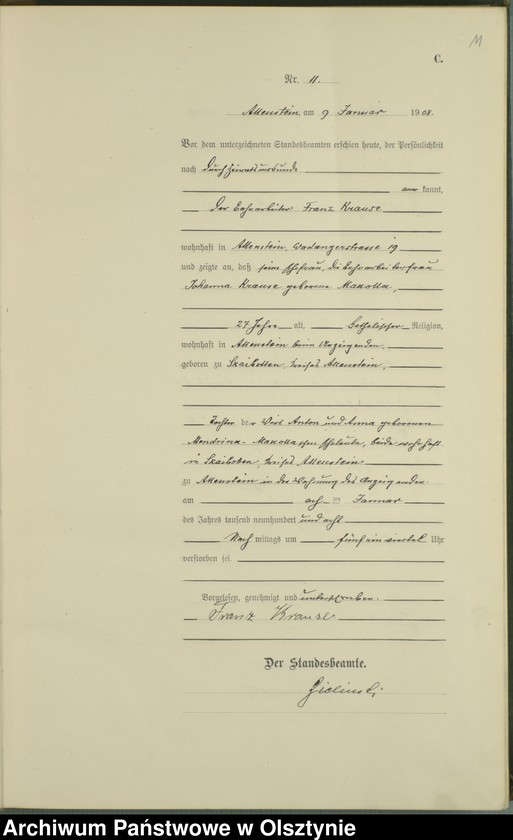 11
C.
Nr. 11.
Allenstein, am 9 Januar 1908.
Vor dem unterzeichneten Standesbeamten erschien heute, der Persönlichkeit
nach durch Heiratsurkunde
kannt,
der Franz Krause
wohnhaft in Allenstein, Wadangerstrasse 19
und zeigte an, daß seine Ehefrau, die
Johanna Krause geborene Makolla,
27 Jahre alt, katholischer Religion,
wohnhaft in Allenstein beim Anzeigenden,
geboren zu Skaibotten, Kreises Allenstein,
Tochter der Wirt Anton und Anna geborenen
Makollaschen Eheleute, beide wohnhaft
in Skaibotten, Kreises Allenstein
zu Allenstein in der Wohnung des Anzeigenden
am Januar
des Jahres tausend neunhundert und acht
Nach mittags um fünf ein viertel Uhr
verstorben sei.
Vorgelesen, genehmigt und unterschrieben.
Franz Krause
Der Standesbeamte.
Archiwum Państwowe w Olsztynie